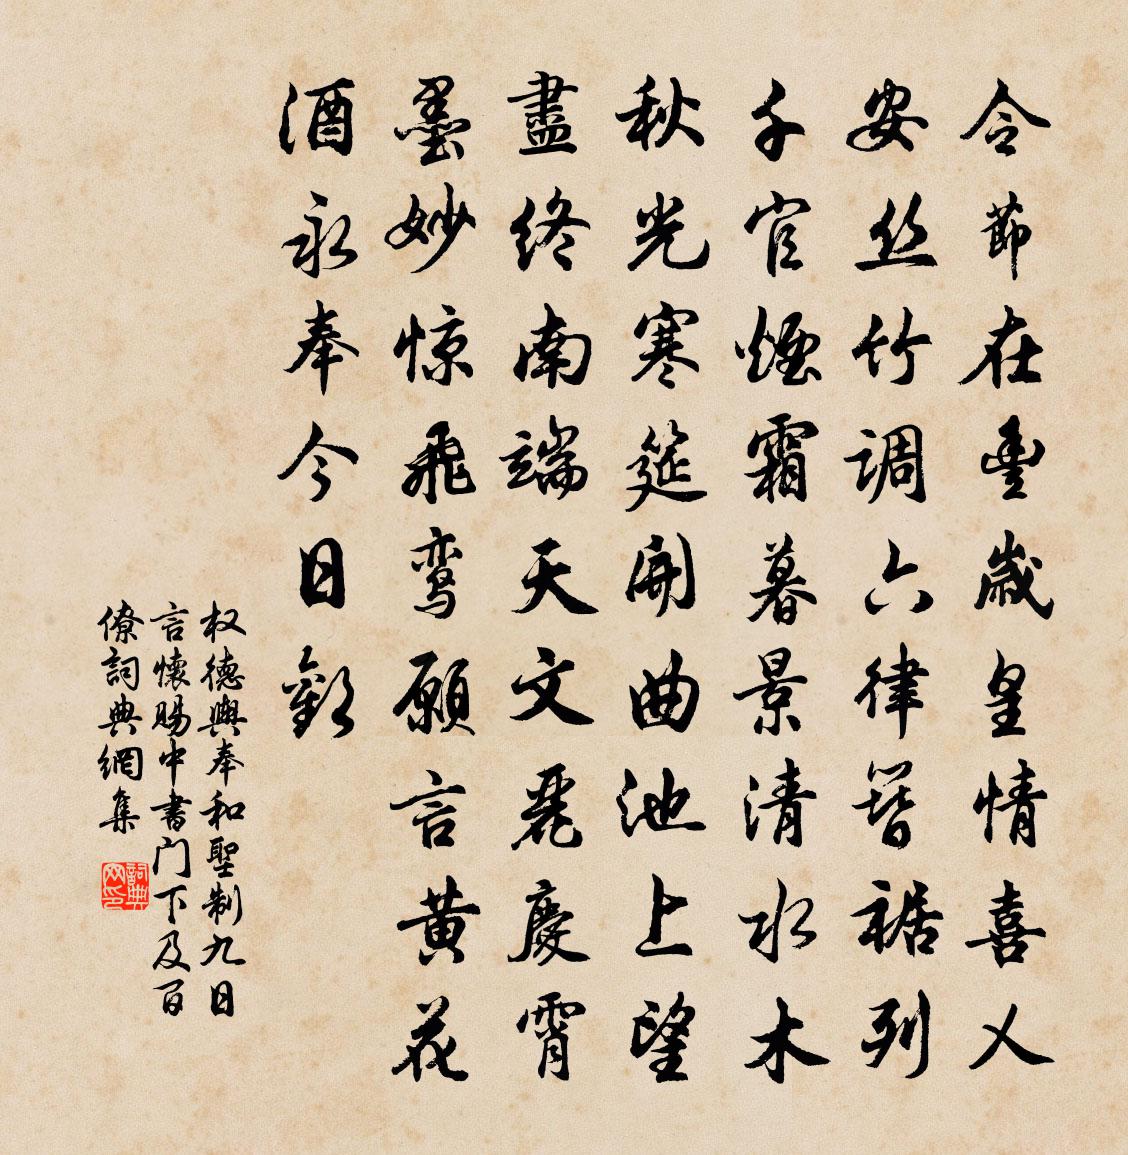 令節在豐歲皇情喜乂
安丝竹调六律簪裾列
千官煙霜暮景清水木
秋光寒筵開曲池上望
盡終南端天文麗慶霄
墨妙惊飛鸾願言黄花
酒永奉今日歡
权德輿奉和聖制九日
言懷賜中書门下及百
僚詞典網集
詞典
网印